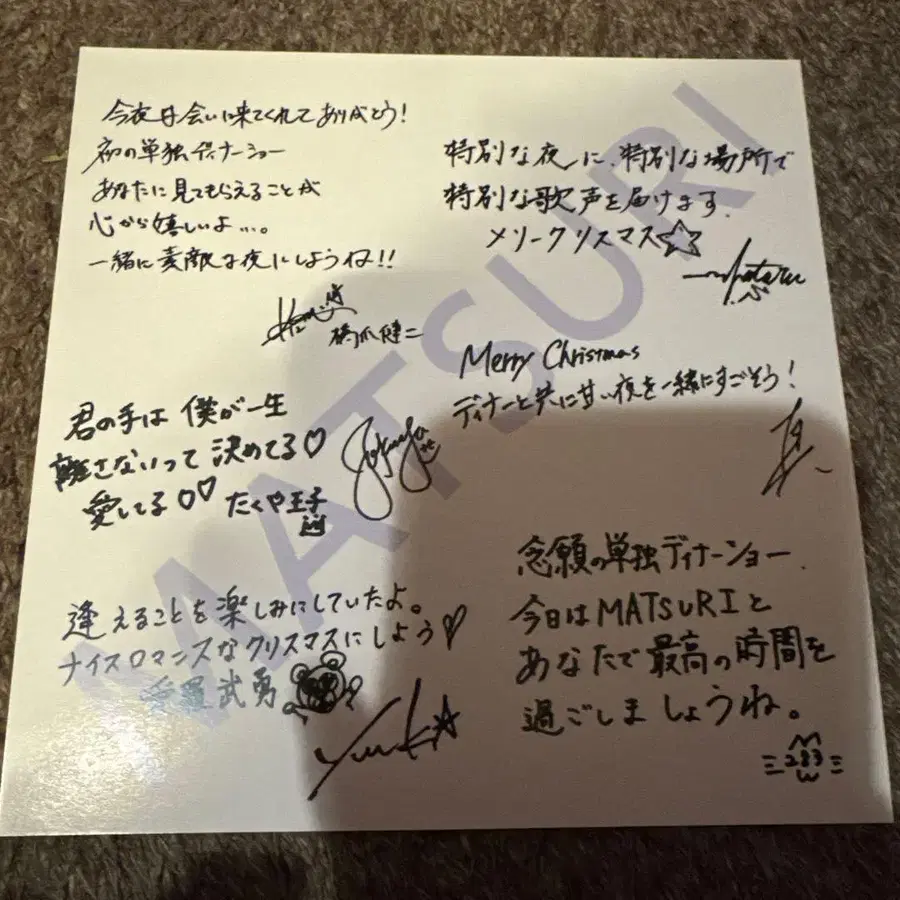 今夜は会いに来てくれてありがとう!
初の単独ディナーショー
あなたに見てもらえることが
心から嬉しいよ…。
一緒に素敵な夜にしようね!!
橋爪健二
特別な夜に、特別な場所で
特別な歌声を届けます.
メリークリスマス☆
Merry Christmas
ディナーと共に甘い夜を一緒にすごそう!
君の手は 僕が一生
離さないって 決めてる♡
愛してる♡♡ たくや王子
逢えることを楽しみにしていたよ。
ナイスロマンスなクリスマスにしよう♡
武勇
Yuuki☆
念願の単独ディナーショー.
今日はMATSURIと
あなたで最高の時間を
過ごしましょうね。
283
MATSURI